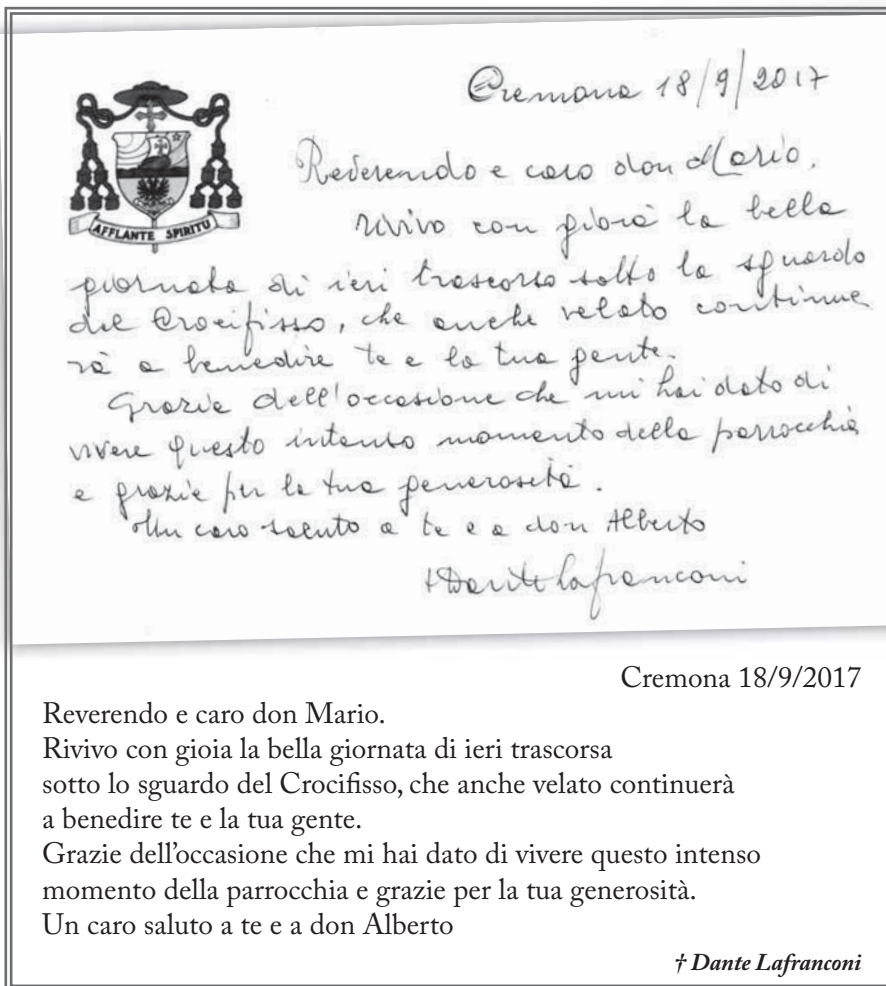 Cremona 18/9/2017
AFFLANTE SPIRITU
Reverendo e caro don Mario.
rivivo con gioia la bella
giornata di ieri trascorsa sotto lo sguardo
del Crocifisso, che anche velato continue
rà a benedire te e la tua gente.
Grazie dell'occasione che mi hai dato di
vivere questo intenso momento della parrocchia
e grazie per la tua generosità.
Un caro saluto a te e a don Alberto
+ Dante Lafranconi
Cremona 18/9/2017
Reverendo e caro don Mario.
Rivivo con gioia la bella giornata di ieri trascorsa
sotto lo sguardo del Crocifisso, che anche velato continuerà
a benedire te e la tua gente.
Grazie dell’occasione che mi hai dato di vivere questo intenso
momento della parrocchia e grazie per la tua generosità.
Un caro saluto a te e a don Alberto
† Dante Lafranconi